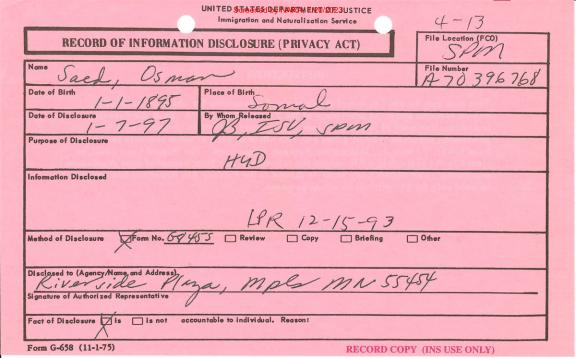 UNITED STATES DEPARTMENT OF JUSTICE
Immigration and Naturalization Service
4-13
RECORD OF INFORMATION DISCLOSURE (PRIVACY ACT)
File Location (FCO)
SPM
Name
Saed, Osman
File Number
A70 396 768
Date of Birth
1-1-1895
Place of Birth
Somal
Date of Disclosure
1-7-97
By Whom Released
ISV, SPM
Purpose of Disclosure
HUD
Information Disclosed
LPR 12-15-93
Method of Disclosure Form No. G845S Review Copy Briefing Other
Disclosed to (Agency/Name, and Address)
Riverside Plaza, Mpls MN 55454
Signature of Authorized Representative
Fact of Disclosure is is not accountable to individual. Reason:
Form G-658 (11-1-75)
RECORD COPY (INS USE ONLY)